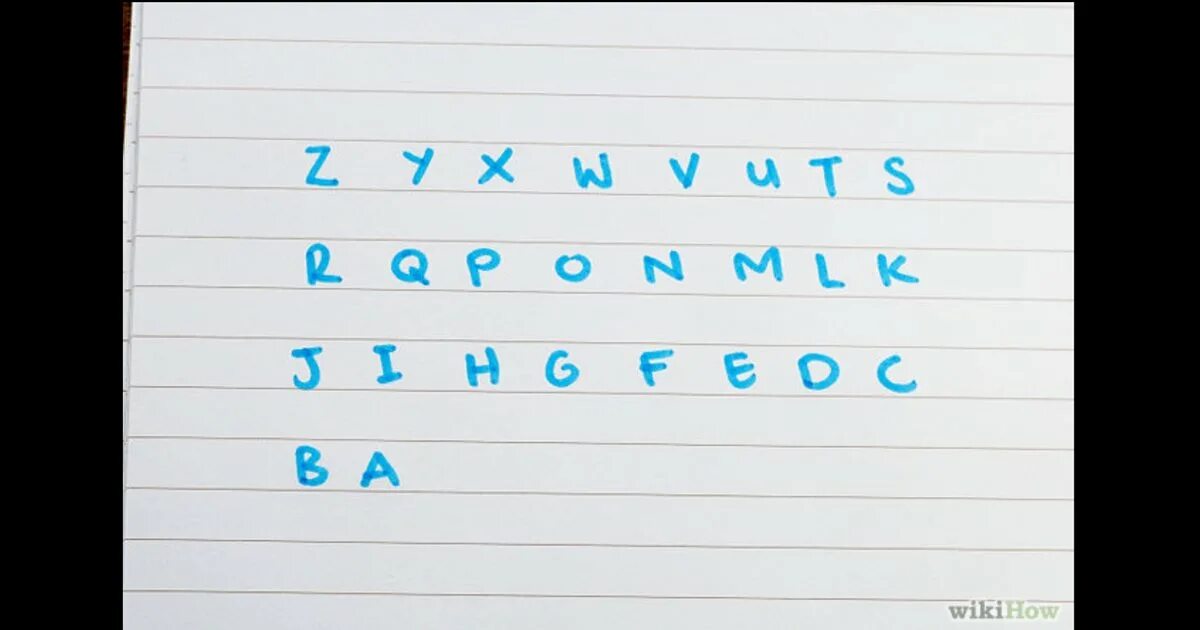 Z Y X W V U T S
R Q P O N M L K
J I H G F E D C
B A
wikiHow